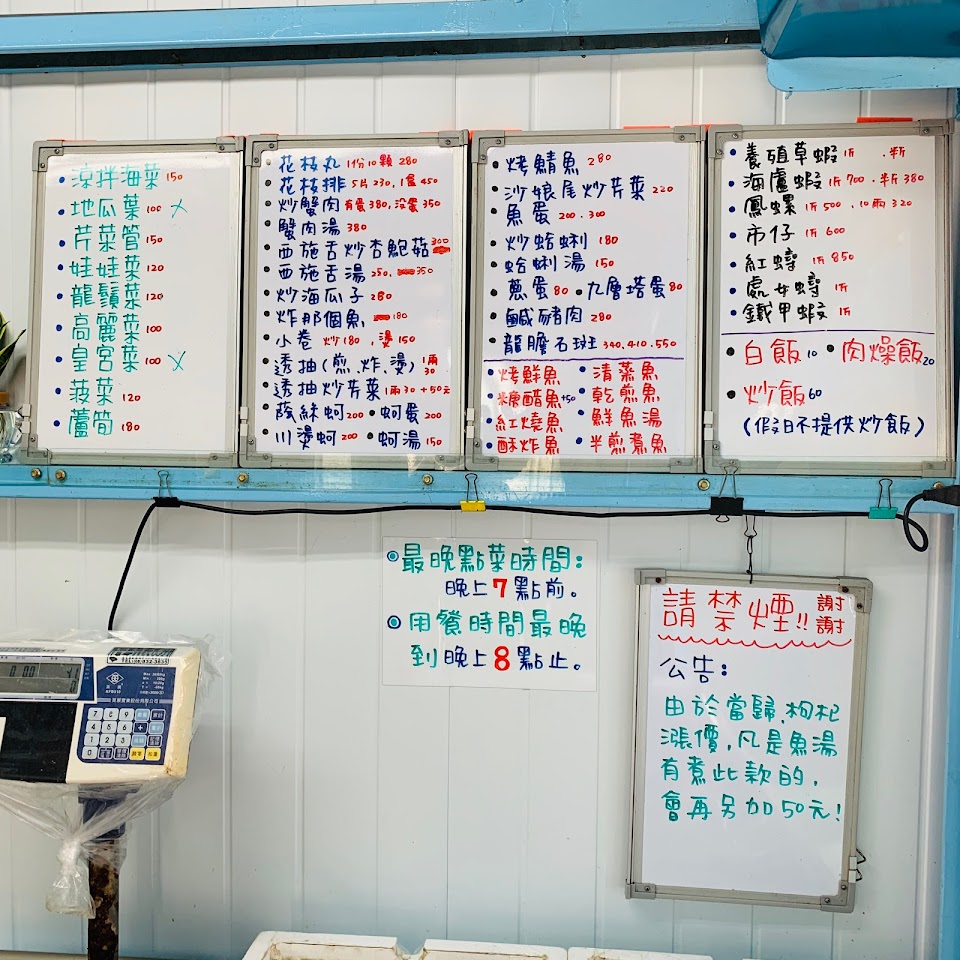 涼拌海菜 150
地瓜葉 100 X
芹菜管 150
娃娃菜 120
龍鬚菜 120
高麗菜 100
皇宮菜 100 X
菠菜 120
蘆筍 180
花枝丸 1份10顆 280
花枝排 5片230, 1盒450
炒蟹肉 有蛋380, 沒蛋350
蟹肉湯 380
西施舌炒杏鮑菇 300
西施舌湯 250, 350
炒海瓜子 280
炸那個魚 180
小卷 炒180, 燙150
透抽(煎、炸、燙) 1兩30
透抽炒芹菜 1兩30+50元
蔭絲蚵 200 • 蚵蛋 200
川燙蚵 200 • 蚵湯 150
烤鯖魚 280
沙娘尾炒芹菜 220
魚蛋 200.300
炒蛤蜊 180
蛤蜊湯 150
蔥蛋 80 • 九層塔蛋 80
鹹豬肉 280
龍膽石斑 340.410.550
• 烤鮮魚 • 清蒸魚
• 糖醋魚+50 • 乾煎魚
• 紅燒魚 • 鮮魚湯
• 酥炸魚 • 半煎煮魚
養殖草蝦 1斤 . 半斤
海盧蝦 1斤700 . 半斤380
鳳螺 1斤500 . 10兩320
市仔 1斤600
紅蟳 1斤850
處女蟳 1斤
鐵甲蝦 1斤
• 白飯 10 • 肉燥飯 20
• 炒飯 60
(假日不提供炒飯)
最晚點菜時間:
晚上7點前。
用餐時間最晚
到晚上8點止。
請禁煙!! 謝謝
公告:
由於當歸、枸杞
漲價, 凡是魚湯
有煮此款的,
會再另加50元!
7 8 9
4 5 6
1 2 3
0